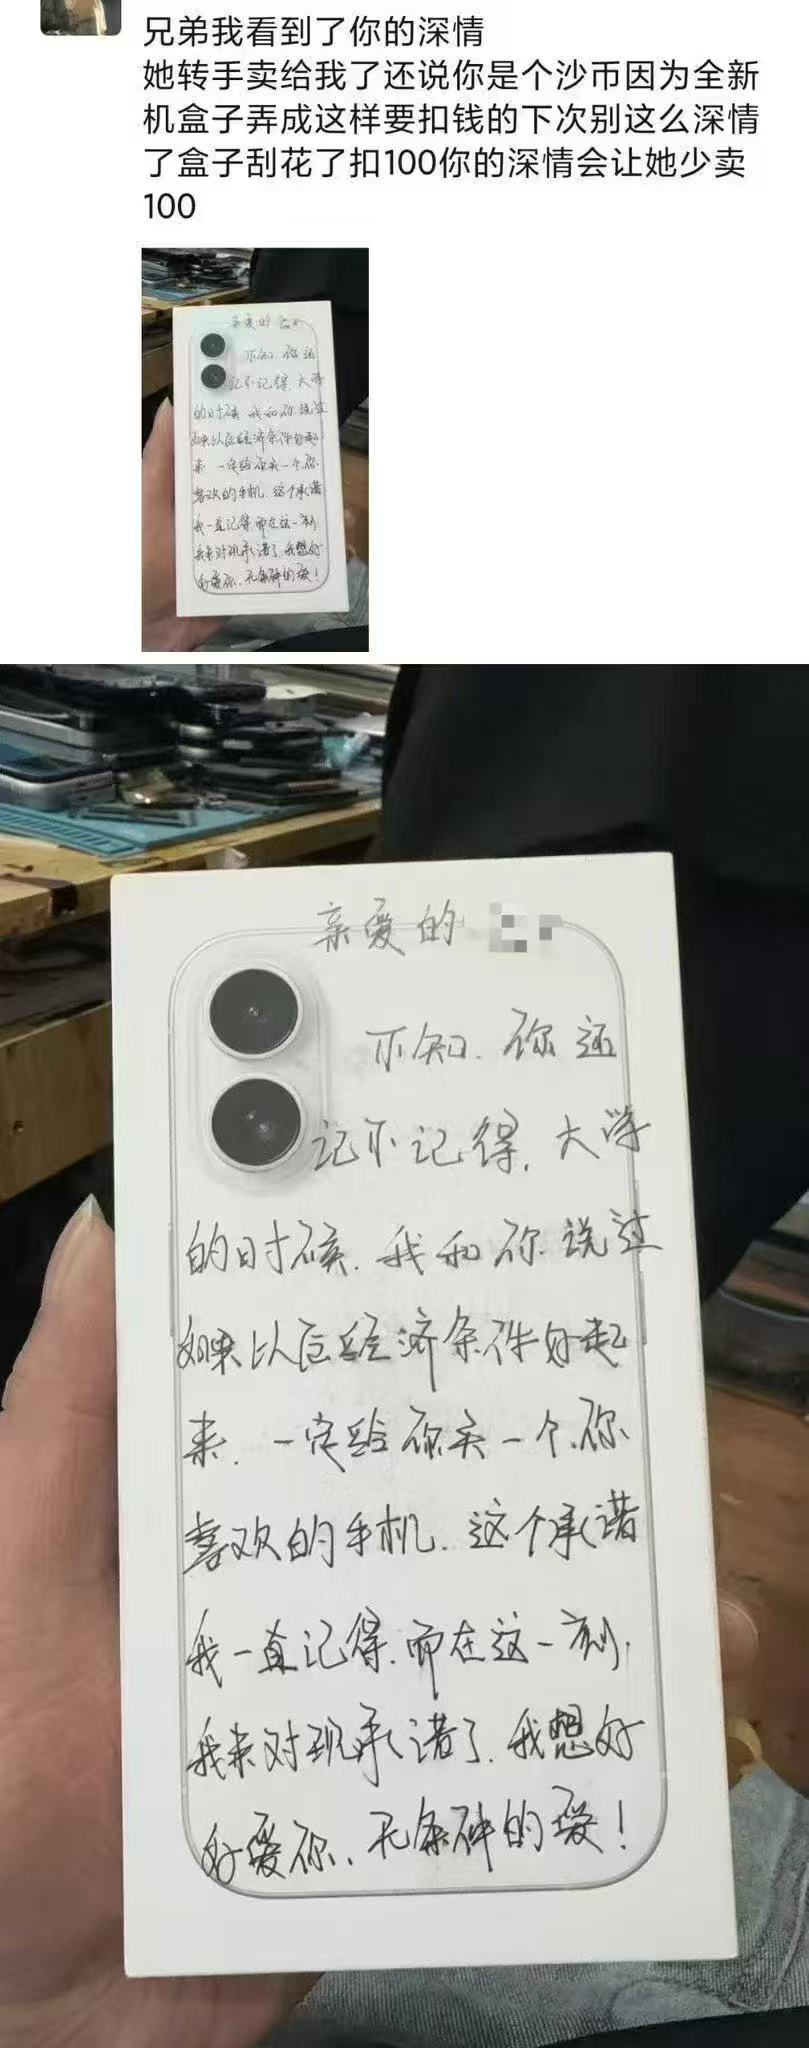 兄弟我看到了你的深情
她转手卖给我了还说你是个沙币因为全新
机盒子弄成这样要扣钱的下次别这么深情
了盒子刮花了扣100你的深情会让她少卖
100
亲爱的
不知.你还
记不记得,大学
的时候 我和你说过
如果以后经济条件好起
来 一定给你买一个.你
喜欢的手机.这个承诺
我一直记得.而在这一刻
我来对现承诺了.我想好
好爱你、无条件的爱!
亲爱的
不知.你还
记不记得,大学
的时候.我和你.说过
如果以后经济条件好起
来.一定给你买一个.你
喜欢的手机.这个承诺
我一直记得.而在这一刻.
我来对现承诺了.我想好
好爱你、无条件的爱!